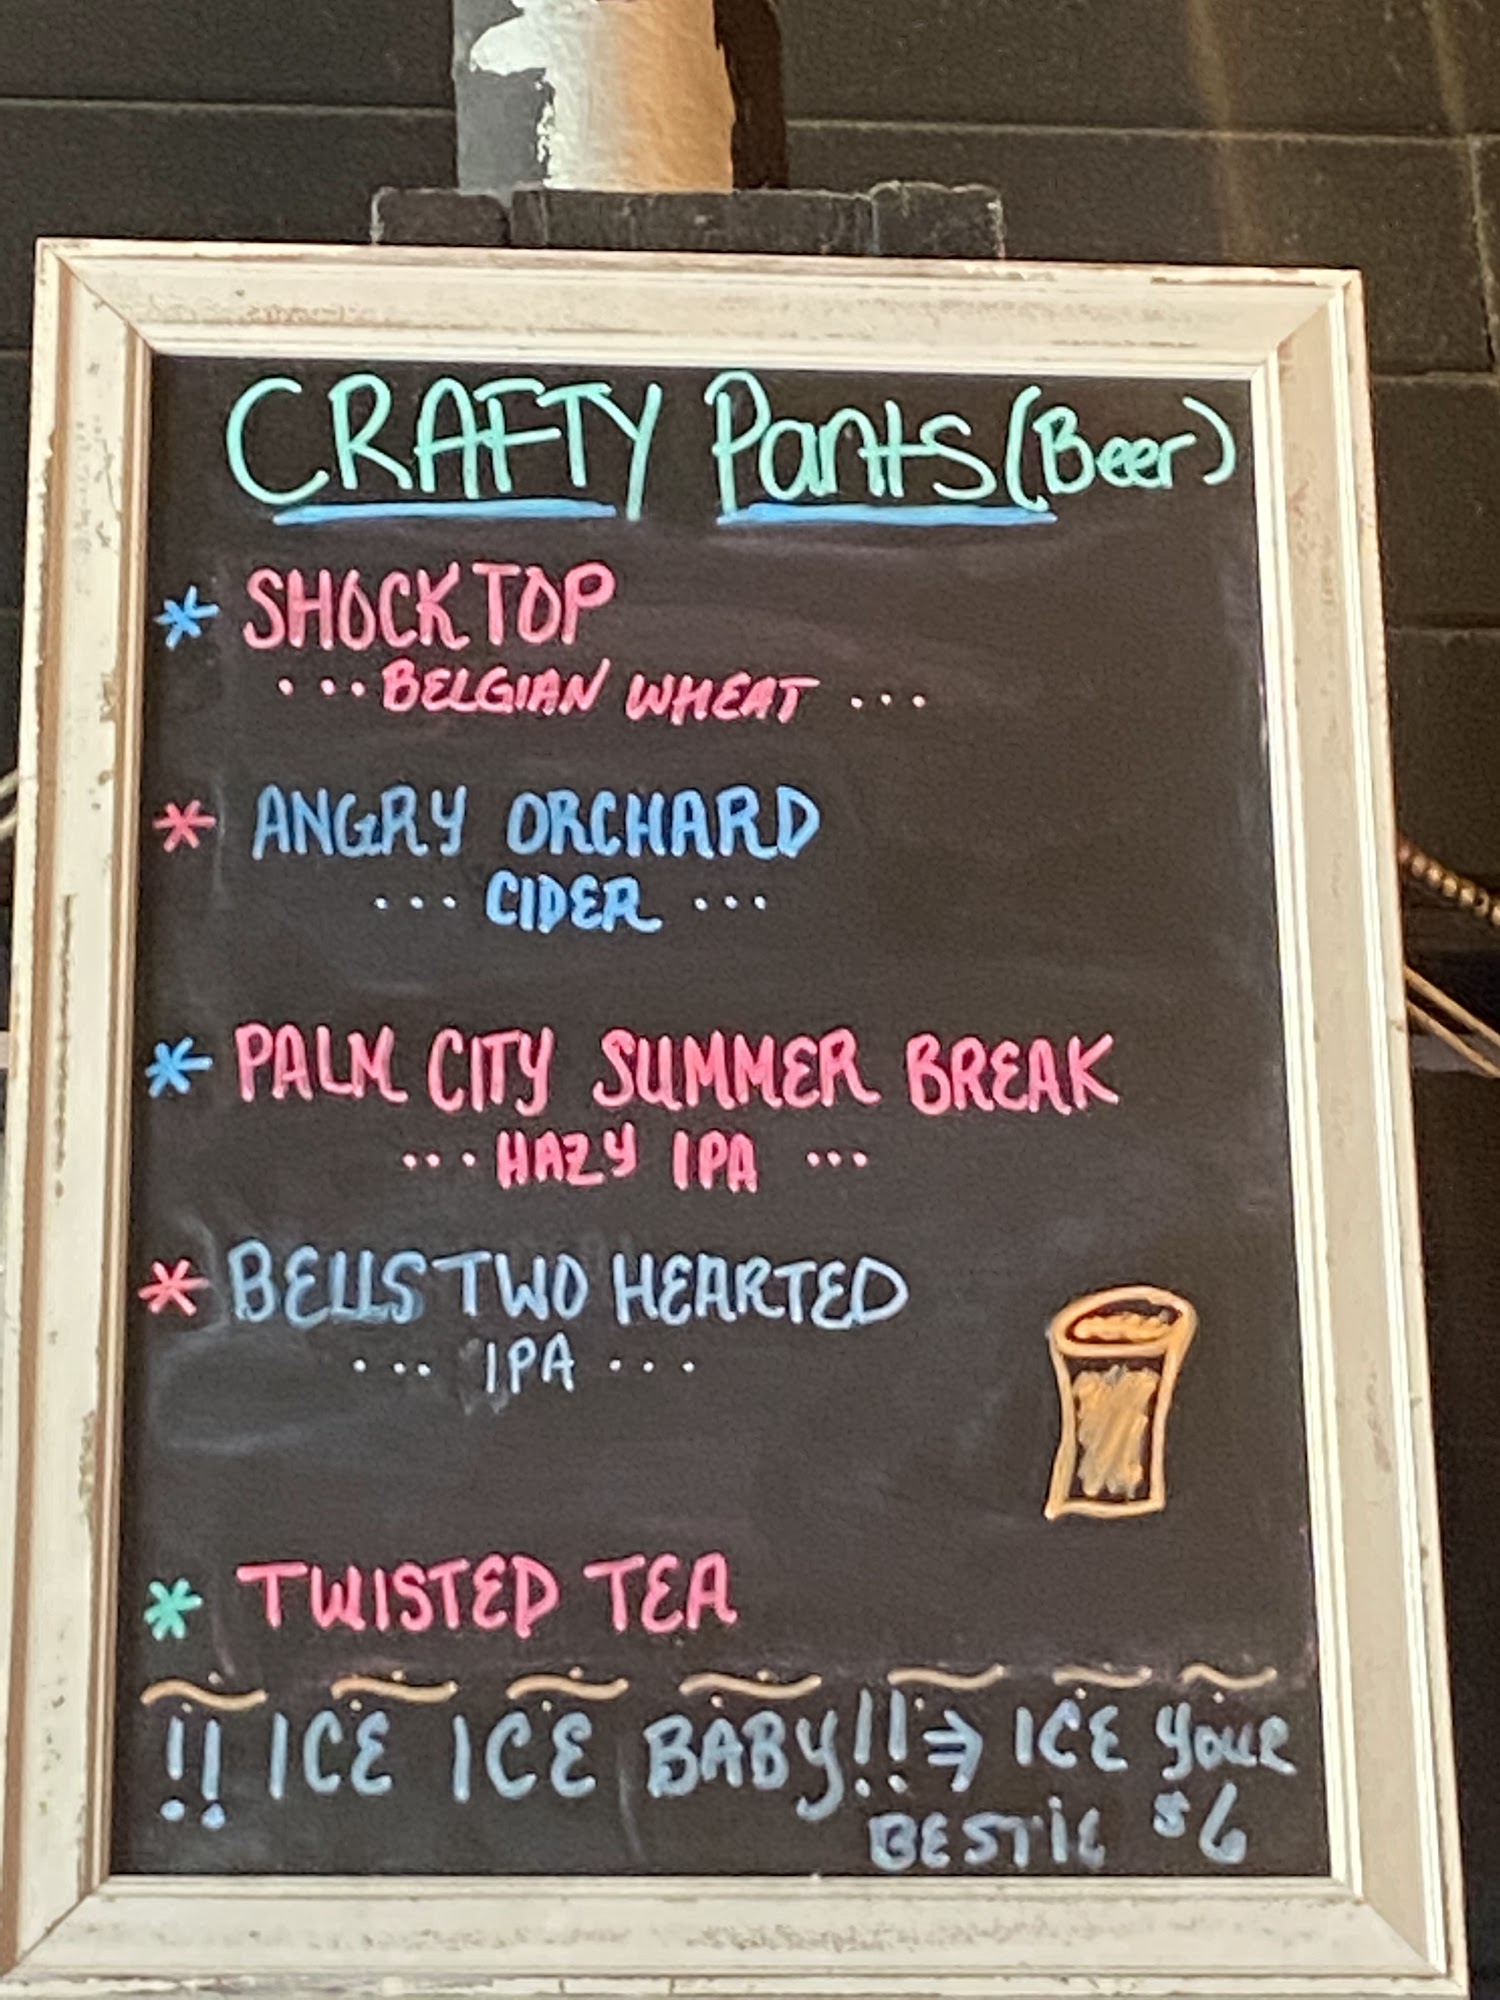 CRAFTY Pants (Beer)
* SHOCK TOP
... BELGIAN WHEAT ...
* ANGRY ORCHARD
... CIDER ...
* PALM CITY SUMMER BREAK
... HAZY IPA ...
* BELLS TWO HEARTED
... IPA ...
* TWISTED TEA
!! ICE ICE BABY!! → ICE YOUR
BESTIE $6